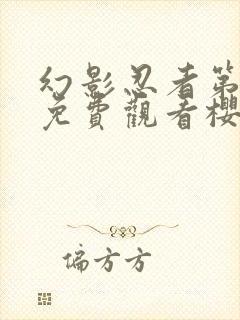 幻影忍者第
免費觀看櫻
偏方方